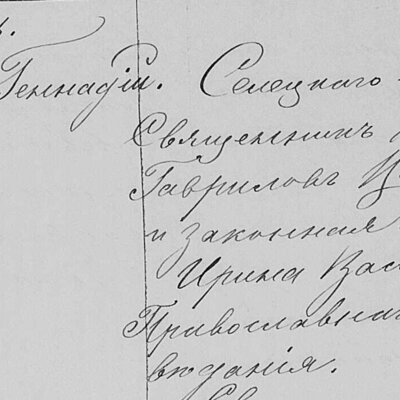 Геннадій. Селецкаго
Священникъ
Гавриловъ
и законная
Ирина Вас
Православнаг
вѣданія.